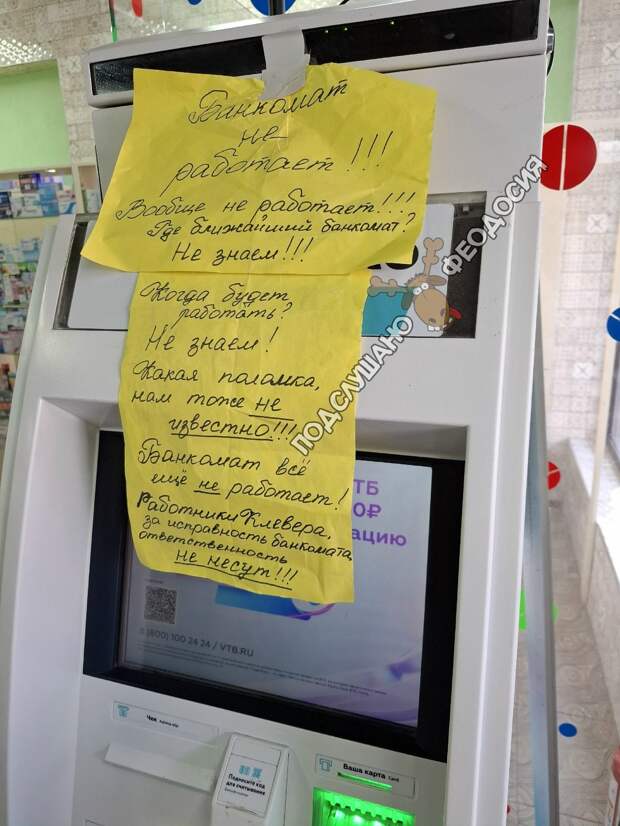 Банкомат
не
работает!!!
Вообще не работает!!!
Где ближайший банкомат?
Не знаем!!!
Когда будет
работать?
Не знаем!
Какая поломка,
нам тоже не
известно!!!
Банкомат всё
ещё не работает!
Работники Клевера,
за исправность банкомата,
ответственность
не несут!!!
ПОДСЛУШАНО ФЕОДОСИЯ
ТБ
0₽
ацию
8 (800) 100 24 24 / VTB.RU
Чек
Ваша карта Card
Поднесите код
для считывания